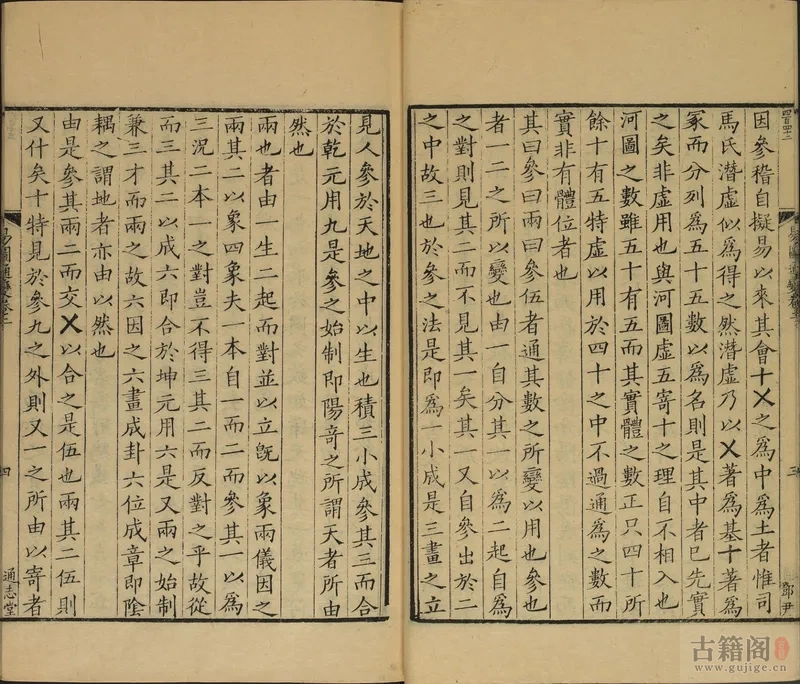 因參稽自擬易以來其會十㐅之為中為土者惟司
馬氏潛虛似為得之然潛虛乃以㐅著為基十著為
冢而分列為五十五數以為名則是其中者巳先實
之矣非虛用也與河圖虛五寄十之理自不相入也
河圖之數雖五十有五而其實體之數正只四十所
餘十有五特虛以用於四十之中不過通為之數而
實非有體位者也
其曰參曰兩曰參伍者通其數之所變以用也參也
者一二之所以變也由一自分其一以為二起自為
之對則見其二而不見其一矣其一又自參出於二
之中故三也於參之法是即為一小成是三畫之立
見人參於天地之中以生也積三小成參其三而合
於乾元用九是參之始制即陽竒之所謂天者所由
然也
兩也者由一生二起而對並以立旣以象兩儀因之
兩其二以象四象夫一本自一而二而參其一以為
三況二本一之對豈不得三其二而反對之乎故從
而三其二以成六即合於坤元用六是又兩之始制
兼三才而兩之故六因之六畫成卦六位成章即陰
耦之謂地者亦由以然也
由是參其兩二而交㐅以合之是伍也兩其二伍則
又什矣十特見於參九之外則又一之所由以寄者
易圖通變卷三
四
通志堂
鄧尹
古籍阁
www.gujige.cn